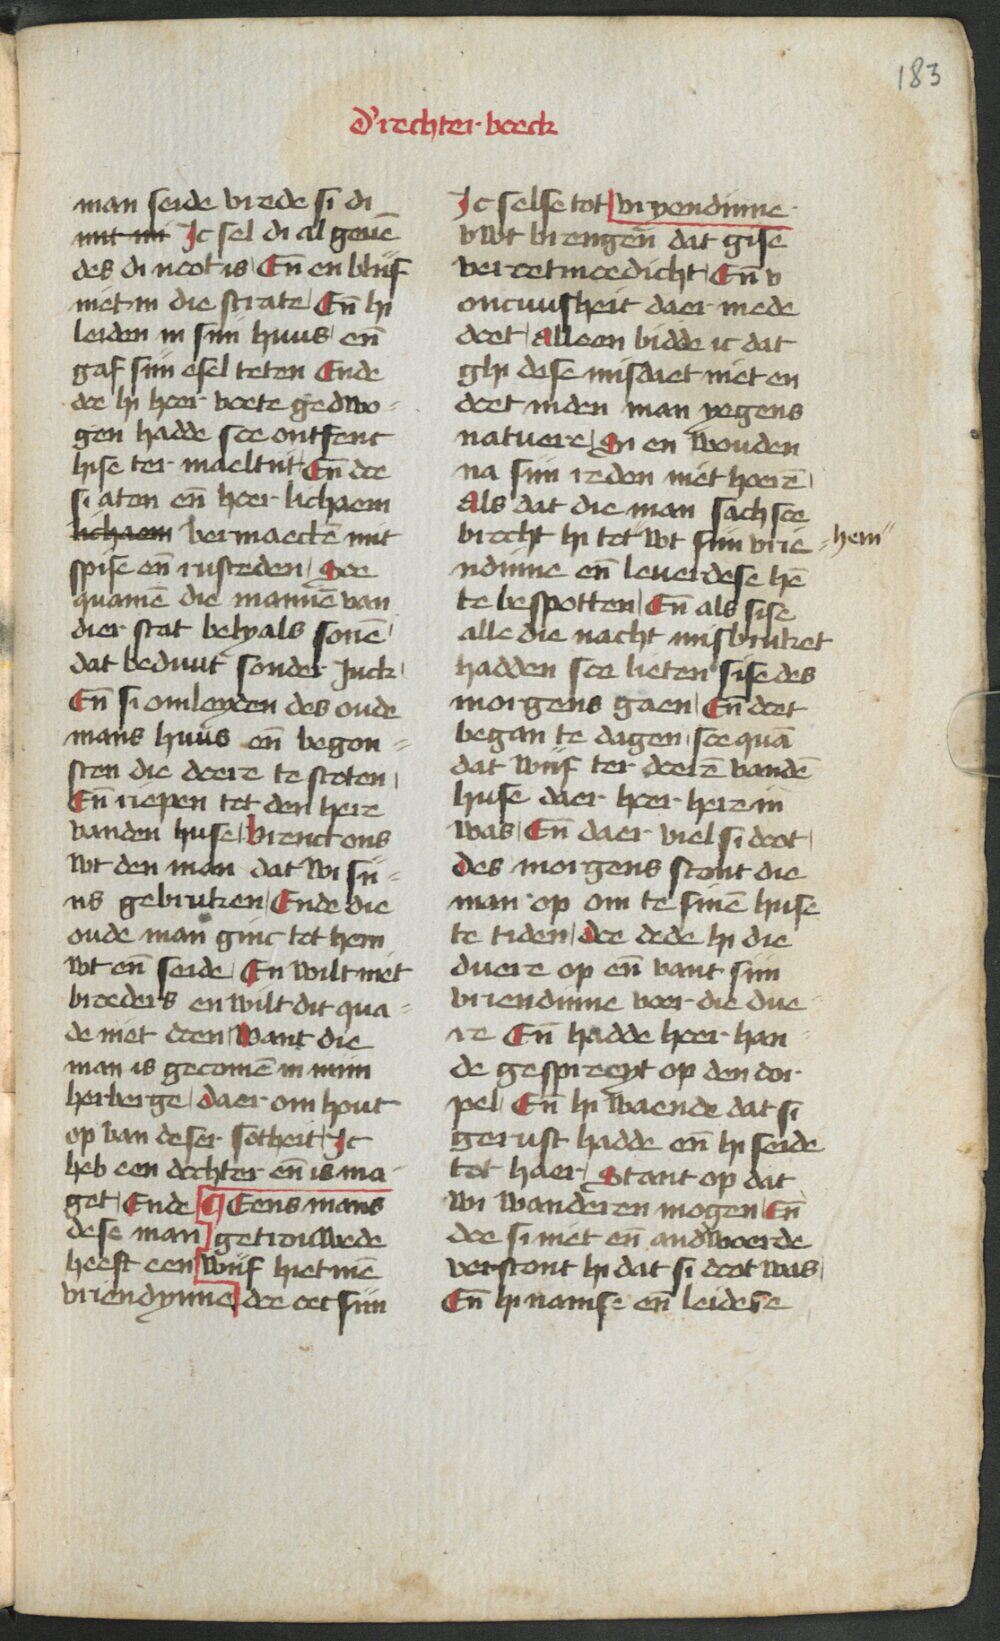 183
d'rechter boeck
man seide vrede si di
mit mi Ic sel di al geuē
des di noot is Eñ en blijf
niet in die strate Eñ hi
leiden in sijn huus eñ
gaf sijn esel teten Ende
doe hi hoer voete gedwo=
gen hadde soe ontfenc
hise ter maeltijt Eñ doe
si aten eñ hoer lichaem
lichaem vermaectē mit
spise eñ rusteden Soe
quamē die mannē van
dier stat belyals sonē
dat beduut sonder Juck
Eñ si omleyden des oude
mans huus eñ begon=
sten die doere te stoten
Eñ riepen tot den here
vanden huse brenct ons
wt den man dat wi sij=
ns gebruken Ende die
oude man ginc tot hem
wt eñ seide En wilt niet
broeders en wilt dit qua=
de niet doen Want die
man is gecomē in mijn
herberge daer om hout
op van deser sotheit Ic
heb een dochter eñ is ma
get Ende ¶ Eens mans
dese man getrouwede
heeft een wijf hietmē
vriendynne die oec sijn
Ic selse tot vryendinne
v wt brengen dat gise
veroetmoedicht Eñ v
oncuusheit daer mede
doet Alleen bidde ic dat
ghi dese misdaet niet en
doet inden man yegens
natuere Si en wouden
na sijn reden niet hoerē
Als dat die man sach soe
brocht hi tot wt sijn vrie= hem
ndinne eñ leuerdese hē
te bespotten Eñ als sise
alle die nacht misbruket
hadden soe lieten sise des
morgens gaen Eñ doet
began te dagen soe quā
dat wijf ter doerē vandē
huse daer hoer here in
was Eñ daer viel si doot
Des morgens stont die
man op om te sinē huse
te tiden Doe dede hi die
duere op eñ vant sijn
vriendinne voer die due=
re Eñ hadde hoer han=
de gespreeyt op den dor
pel Eñ hi waende dat si
gerust hadde eñ hi seide
tot haer Stant op dat
wi wanderen mogen Eñ
doe si niet eñ andwoerde
verstont hi dat si doot was
Eñ hi namse eñ leidese